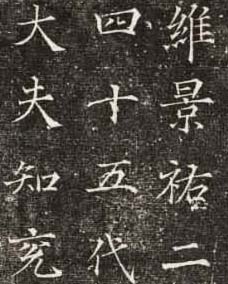 維景祐二
四十五代
大夫知兖